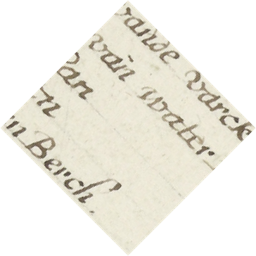 vande Varck
van water
an
en
n Berch.